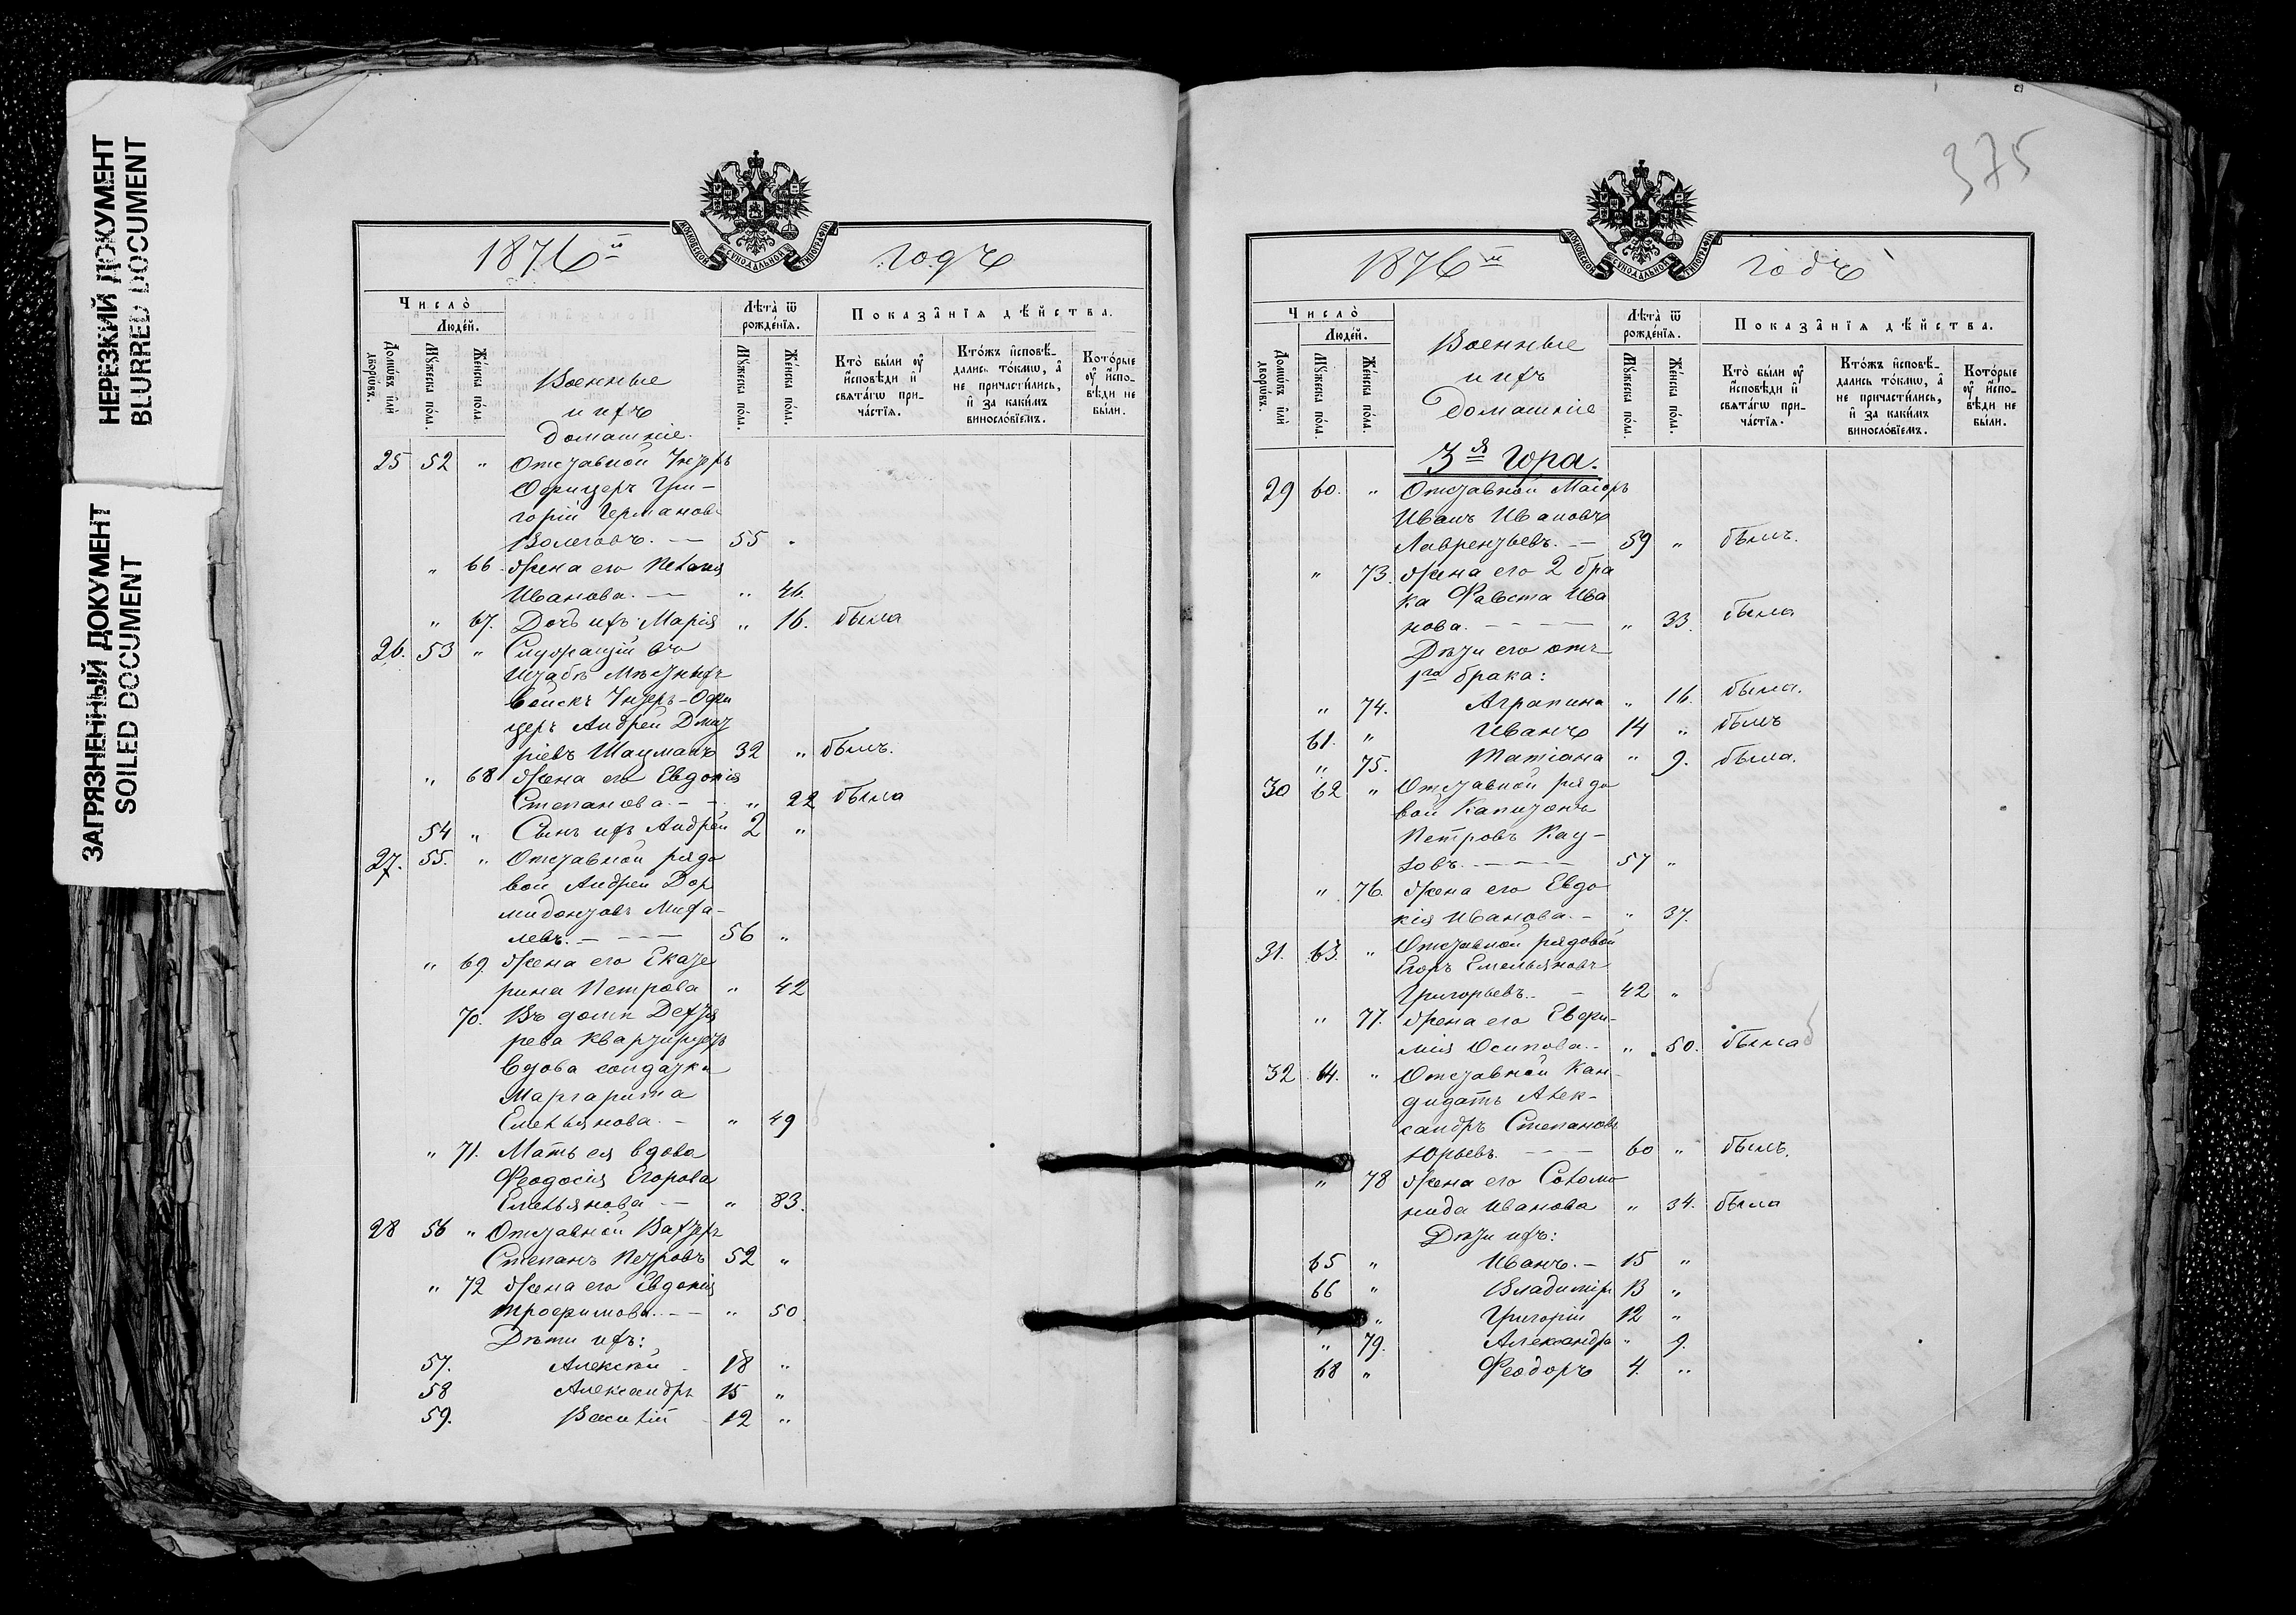 НЕРЕЗКИЙ ДОКУМЕНТ
BLURRED DOCUMENT
ЗАГРЯЗНЕННЫЙ ДОКУМЕНТ
SOILED DOCUMENT
МОСКОВСКОЙ СѴНОДАЛЬНОЙ ТИПОГРАФІИ
1876й годъ
Число̀
Люде́й.
Домѡ́въ илѝ дворѡ́въ.
Мꙋ́жеска по́ла.
Же́нска по́ла.
Военные
и ихъ
домашніе.
Лѣта̀ ѿ рожде́нїѧ.
Мꙋ́жеска по́ла.
Же́нска по́ла.
Показа̑нїѧ дѣ́йства.
Кто̀ бы́ли ᲂу҆ и҆сповѣди и҆ свѧта́гѡ прича́стїѧ.
Кто́жъ и҆сповѣ́дались то́кмѡ, а҆ не причасти́лись, и҆ за каки́мъ винословїемъ.
Кото́рые ᲂу҆ и҆сповѣди не бы́ли.
25 52 " Отставной Унтеръ
Офицеръ Гри-
горій Германовъ
Волеговъ. — 55 "
" 66 жена его Пелагія
Иванова. — " 46.
" 67. Дочь ихъ Марія " 16. была
26. 53 " Служащій въ
Штабѣ Мѣстныхъ
Войскъ Унтеръ-Офи
церъ Андрей Дмит
ріевъ Шацманъ 32 " былъ.
" 68 жена его Евдокія
Степанова. - - " 22 была
54 " Сынъ ихъ Андрей 2 "
27. 55. " Отставной рядо
вой Андрей Дор
мидонтовъ Миха-
левъ. — - - — 56 "
" 69 жена его Екате
рина Петрова " 42
70. Въ домѣ Дехтя
рева квартируетъ
вдова солдатка
Маргарита
Емельянова. - " 49
" 71. Мать ея вдова
Феодосія Егорова
Емельянова — " 83.
28 56 " Отставной Вахтеръ
Степанъ Петровъ 52 "
" 72 жена его Евдокія
Трофимова. - — " 50.
Дѣти ихъ:
57. Алексѣй - 18 "
58 Александръ 15 "
59. Василій - 12 "
375
МОСКОВСКОЙ СѴНОДАЛЬНОЙ ТИПОГРАФІИ
1876й годъ
Число̀
Люде́й.
Домѡ́въ илѝ дворѡ́въ.
Мꙋ́жеска по́ла.
Же́нска по́ла.
Военные
и ихъ
Домашніе
Лѣта̀ ѿ рожде́нїѧ.
Мꙋ́жеска по́ла.
Же́нска по́ла.
Показа̑нїѧ дѣ́йства.
Кто̀ бы́ли ᲂу҆ и҆сповѣди и҆ свѧта́гѡ прича́стїѧ.
Кто́жъ и҆сповѣ́дались то́кмѡ, а҆ не причасти́лись, и҆ за каки́мъ винословїемъ.
Кото́рые ᲂу҆ и҆сповѣди не бы́ли.
3я Гора.
29 60. " Отставной Маіоръ
Иванъ Ивановъ
Лаврентьевъ. — 59 " былъ.
" 73. жена его 2 бра
ка Фавста Ива
нова. - - — " 33. была
Дѣти его отъ
1го брака:
" 74. Аграпина " 16. была.
61. " Иванъ 14 " былъ
" 75. Татіана " 9. была.
30 62 " Отставной рядо
вой Капитонъ
Петровъ Кау-
ловъ. - — - — 57 "
" 76. жена его Евдо
кія Иванова. - " 37.
31. 63. " Отставной рядовой
Егоръ Емельяновъ
Григорьевъ. - - 42 "
" 77. жена его Евфи-
мія Осипова. - " 50. была
32 64. " Отставной Кан-
дидатъ Алек-
сандръ Степановъ
Юрьевъ. - — - 60 " былъ.
" 78 жена его Соломо
нида Иванова " 34. была
Дѣти ихъ:
65 " Иванъ. - 15 "
66 " Владиміръ 13 "
" Григорій 12 "
" 79. Александра " 9.
68 " Феодоръ 4. "